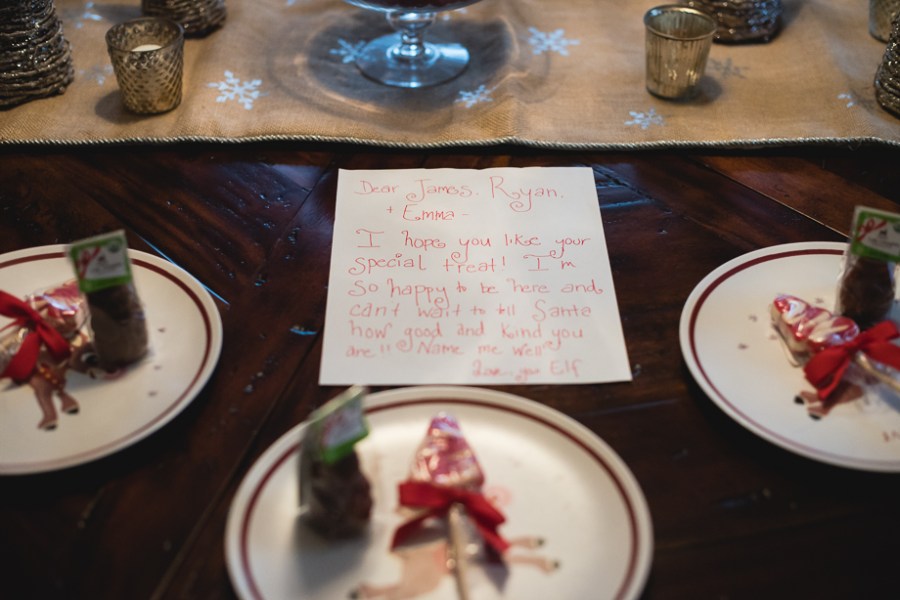 Dear James, Ryan,
+ Emma -
I hope you like your
special treat! I'm
so happy to be here and
can't wait to tell Santa
how good and kind you
are!! Name me well
Love, your Elf